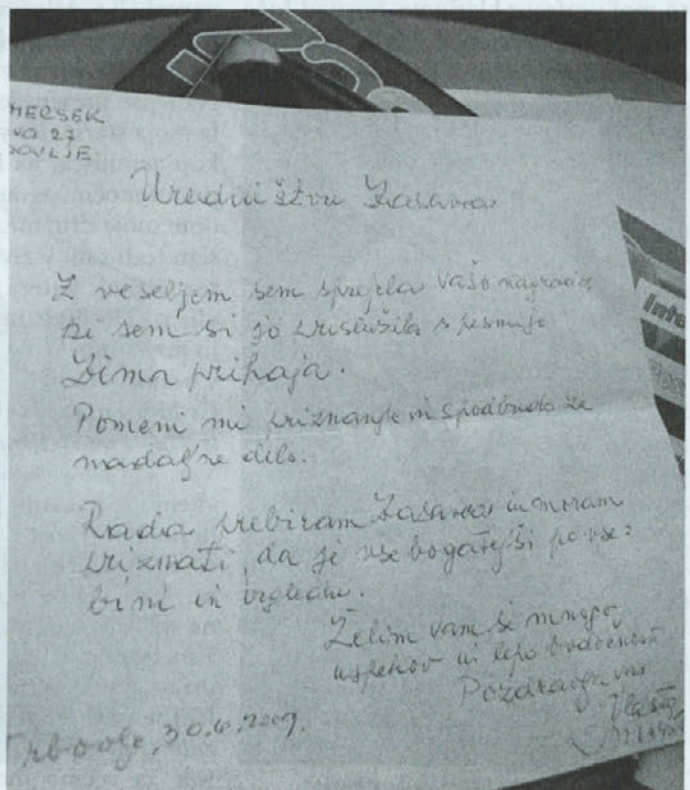 MERSEK
VO 27
OVLJE
Uredništvu Zasavca
Z veseljem sem sprejela vašo nagrado
ki sem si jo prislužila s pesmijo
Zima prihaja.
Pomeni mi priznanje in spodbudo za
nadaljne delo.
Rada prebiram Zasavca in moram
priznati, da je vse bogatejši po vse=
bini in izgledu.
Želim vam še mnogo
uspehov in lepo bodočnost
Pozdravlja vas
Vlasta
Trbovlje, 30.6.2009.
Inte